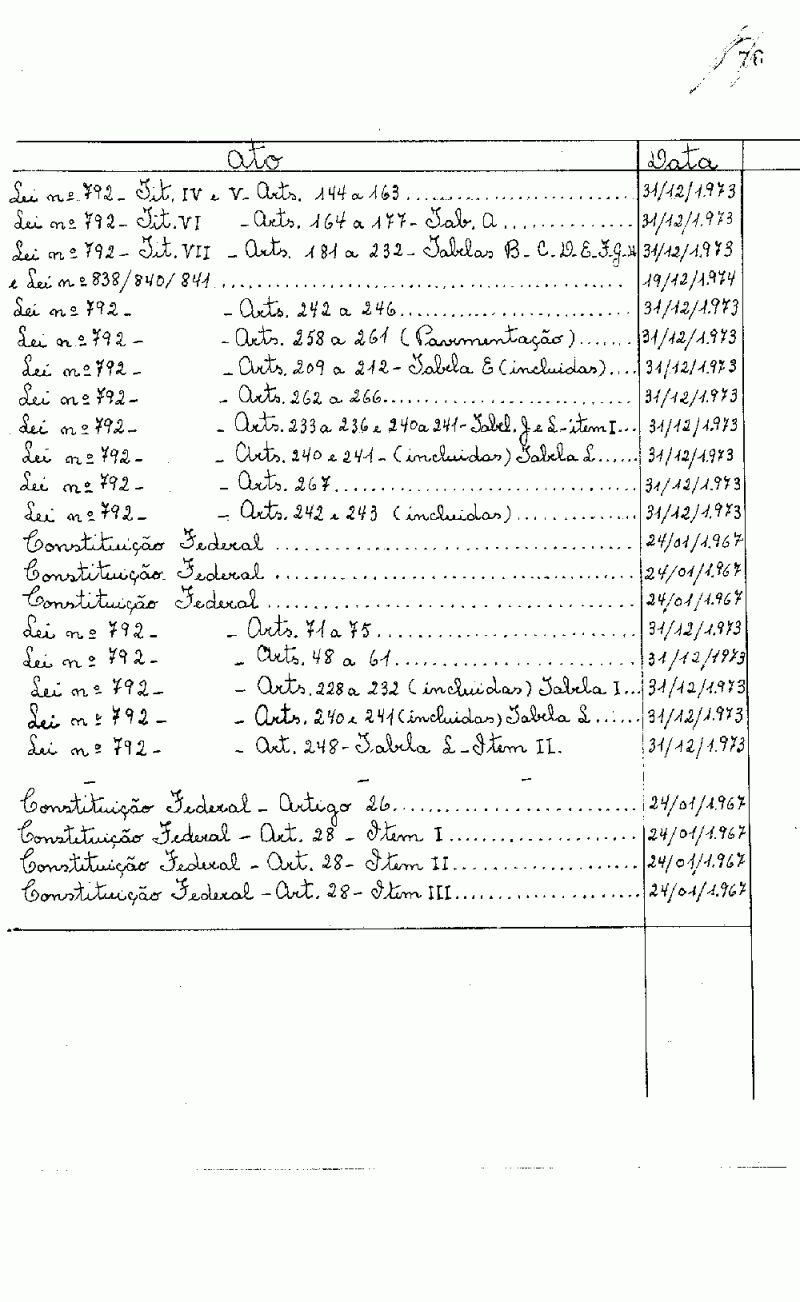 76
Ato Data
Lei nº 792 - Tit. IV e V - Arts. 144 a 163 .......................... 31/12/1.973
Lei nº 792 - Tit. VI - Arts. 164 a 177 - Tab. A .............. 31/12/1.973
Lei nº 792 - Tit. VII - Arts. 181 a 232 - Tabelas B - C - D - E - F - g - H 31/12/1.973
e Lei nº 838/840/841 .............................................. 19/12/1.974
Lei nº 792 - - Arts. 242 a 246 .......................... 31/12/1.973
Lei nº 792 - - Arts. 258 a 261 (Pavimentação) ....... 31/12/1.973
Lei nº 792 - - Arts. 209 a 212 - Tabela E (incluidas) .... 31/12/1.973
Lei nº 792 - - Arts. 262 a 266 ............................ 31/12/1.973
Lei nº 792 - - Arts. 233 a 236 e 240 a 241 - Tabel. J e L - item I ... 31/12/1.973
Lei nº 792 - - Arts. 240 e 241 - (incluidas) Tabela L ...... 31/12/1.973
Lei nº 792 - - Arts. 267 ................................ 31/12/1.973
Lei nº 792 - - Arts. 242 e 243 (incluidas) .............. 31/12/1.973
Constituição Federal ........................................ 24/01/1.967
Constituição Federal ........................................ 24/01/1.967
Constituição Federal ......................................... 24/01/1.967
Lei nº 792 - - Arts. 71 a 75 ............................. 31/12/1.973
Lei nº 792 - - Arts. 48 a 61 ........................... 31/12/1973
Lei nº 792 - - Arts. 228 a 232 (incluidas) Tabela I ... 31/12/1.973
Lei nº 792 - - Arts. 240 e 241 (incluidas) Tabela L ...... 31/12/1.973
Lei nº 792 - - Art. 248 - Tabela L - Item II. 31/12/1.973
- - -
Constituição Federal - Artigo 26 ........................... 24/01/1.967
Constituição Federal - Art. 28 - Item I ..................... 24/01/1.967
Constituição Federal - Art. 28 - Item II .................... 24/01/1.967
Constituição Federal - Art. 28 - Item III .................... 24/01/1.967